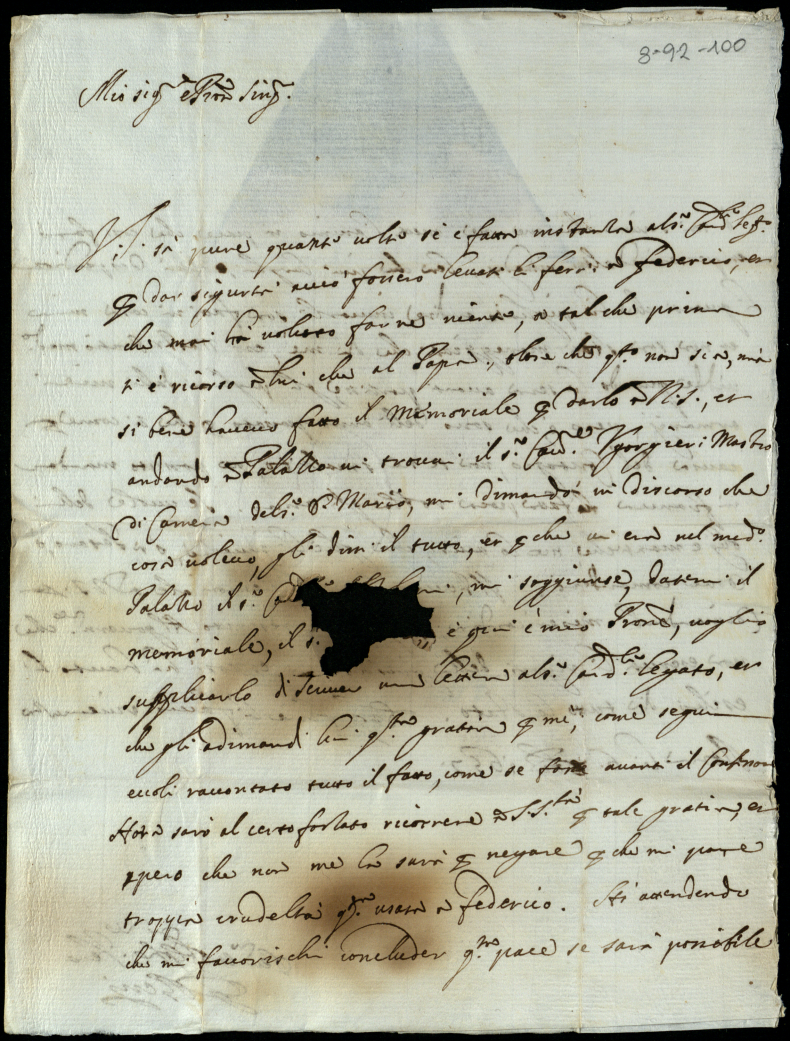 8-92-100
Mio sig.r e Pron Sing.
V.S. sà pure quante volte si è fatta instanza al s.r Card.le leg.o
p dar sigurtà acciò fossero levati li ferri à Federico, et
che mai hà voluto farne niente, à tal che prima
ti è ricorso à lui che al Papa, oltre che q.to non si è, mà
si bene havevo fatto il Memoriale p darlo à N.S., et
andando à Palazzo vi trovai il s.r Cav.re Ugorgieri Mastro
di Camera del s.r D. Mario, mi dimandò in discorso che
cosa volevo, gli dissi il tutto, et p che vi era nel med.o
Palazzo il s.r mi soggiunse, datemi il
memoriale, il s. è qui è mio Prone, voglio
supplicarlo di scriver una lettera al s.r Card.le legato, et
che gli adimandi lui q.ta gratia p mè, come seguì
eccoli raccontato tutto il fatto, come se fosse avanti il Confessore
Hora sarò al certo forzato ricorrere à S.S.tà p tale gratia, et
spero che non me la sarà p negare p che mi pare
troppa crudeltà q.ta usata à Federico. Sti attendendo
che mi favorischi concluder q.ta pace se sarà possibile